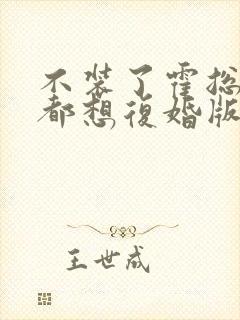 不装了霍总
都想復婚版
王世成